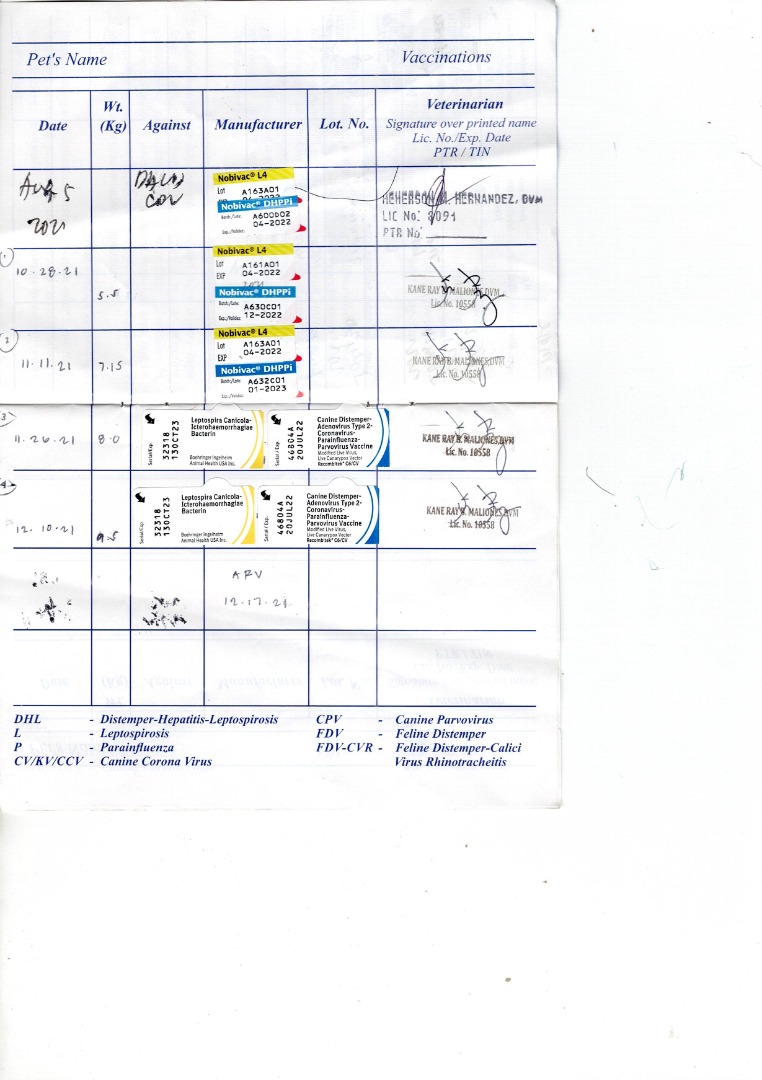 Pet's Name Vaccinations
Date Wt. (Kg) Against Manufacturer Lot. No. Veterinarian
Signature over printed name
Lic. No./Exp. Date
PTR / TIN
Aug 5
2021
Nobivac® L4
Lot A163A01
Nobivac® DHPPi
A600D02
04-2022
HERNANDEZ, DVM
LIC No: 8091
PTR No
1
10-28-21
5.5
Nobivac® L4
Lot A161A01
EXP 04-2022
Nobivac® DHPPi
A630C01
12-2022
KANE RAY B. MALIONES, DVM
Lic. No. 10558
2
11.11.21
7.15
Nobivac® L4
Lot A163A01
EXP 04-2022
Nobivac® DHPPi
A632C01
01-2023
KANE RAY B. MALIONES, DVM
Lic. No. 10558
3
11.26.21
8.0
Serial/Exp.
32318
13OCT23
Leptospira Canicola-
Icterohaemorrhagiae
Bacterin
Boehringer Ingelheim
Animal Health USA Inc.
Serial / Exp.
46804A
20JUL22
Canine Distemper-
Adenovirus Type 2-
Coronavirus-
Parainfluenza-
Parvovirus Vaccine
Modified Live Virus,
Live Canarypox Vector
Recombitek® C6/CV
KANE RAY B. MALIONES, DVM
Lic. No. 10558
4
12.10.21
9.5
Serial/Exp.
32318
13OCT23
Leptospira Canicola-
Icterohaemorrhagiae
Bacterin
Boehringer Ingelheim
Animal Health USA Inc.
Serial / Exp.
46804A
20JUL22
Canine Distemper-
Adenovirus Type 2-
Coronavirus-
Parainfluenza-
Parvovirus Vaccine
Modified Live Virus,
Live Canarypox Vector
Recombitek® C6/CV
KANE RAY B. MALIONES, DVM
Lic. No. 10558
ARV
12.17.21
DHL - Distemper-Hepatitis-Leptospirosis
L - Leptospirosis
P - Parainfluenza
CV/KV/CCV - Canine Corona Virus
CPV - Canine Parvovirus
FDV - Feline Distemper
FDV-CVR - Feline Distemper-Calici
Virus Rhinotracheitis